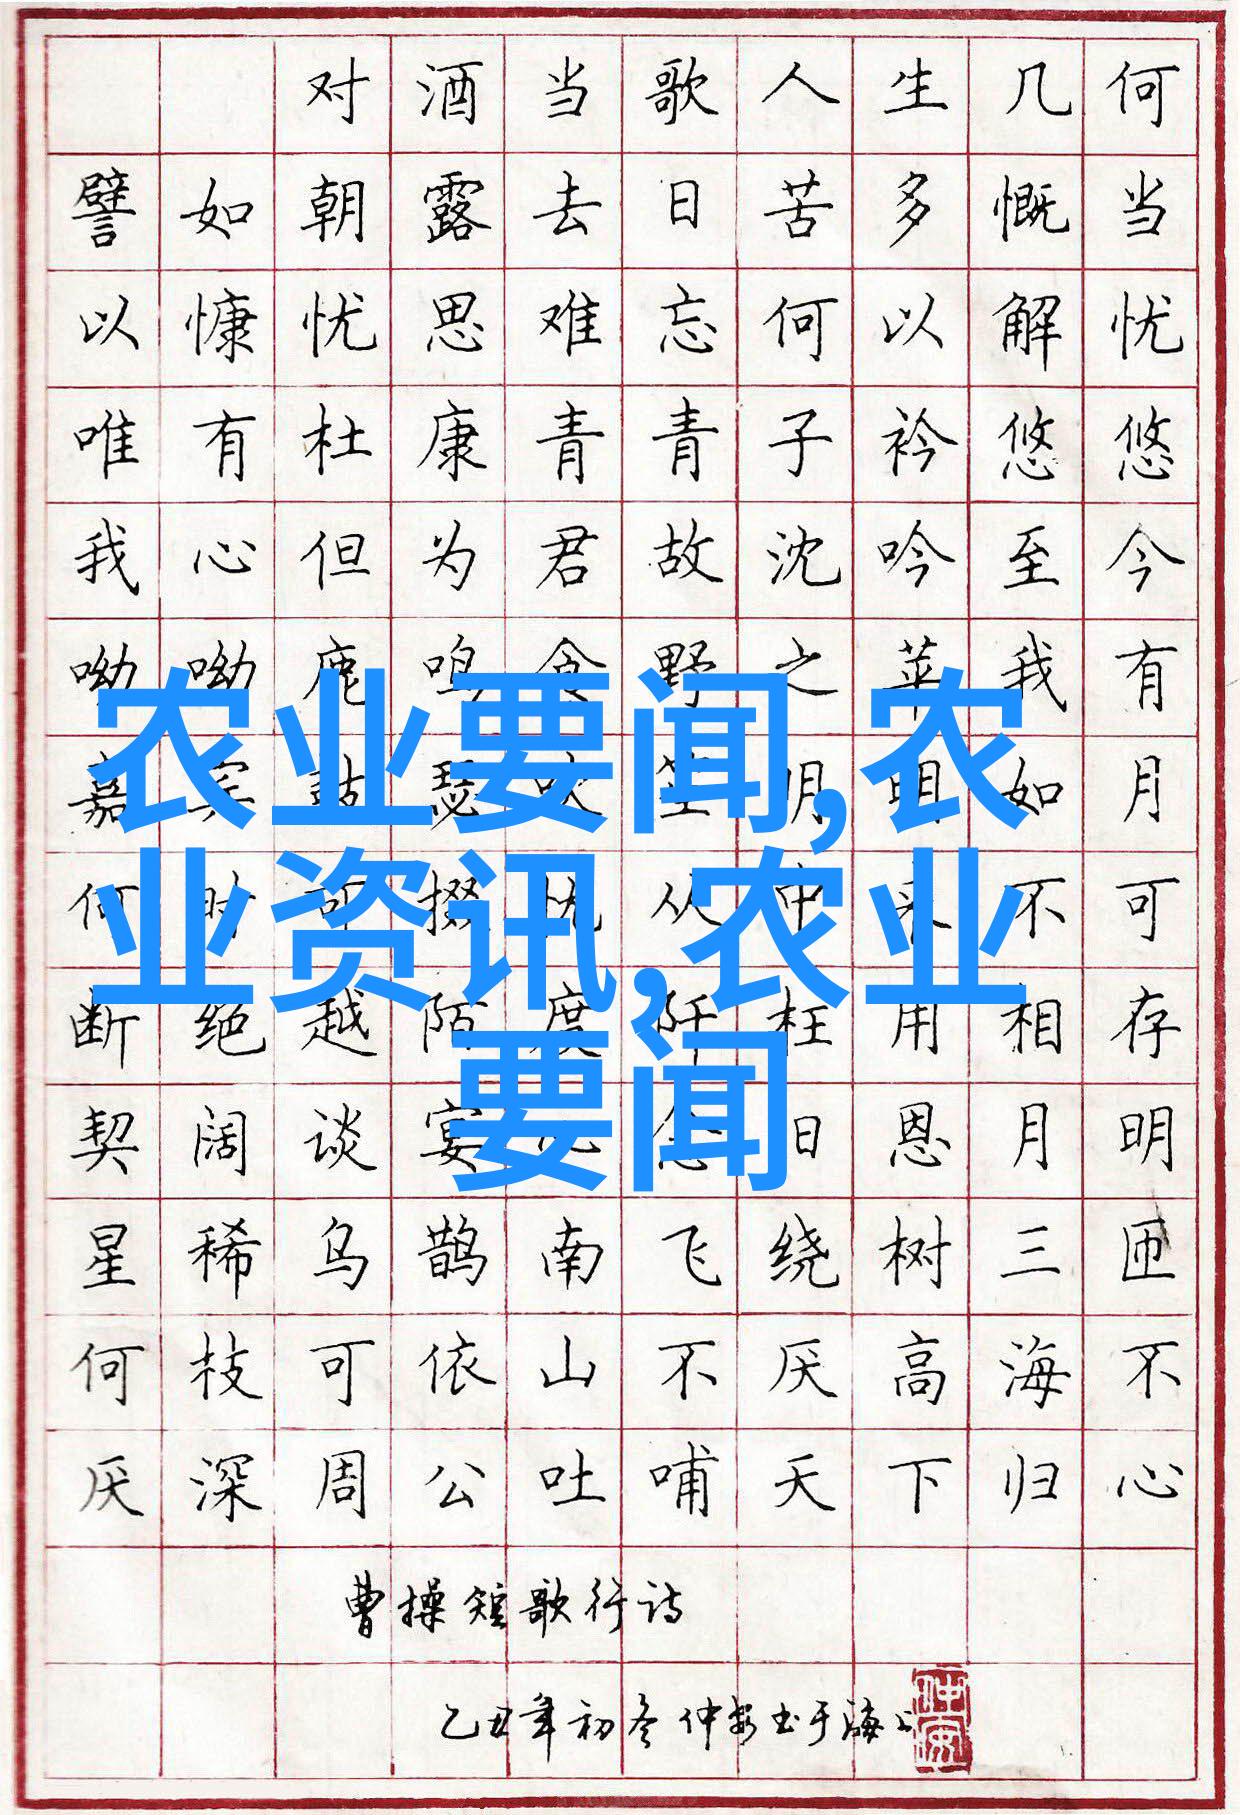 对酒当歌人生几何
譬如朝露去日苦多慨当
以慷忧思难忘何以解忧
唯有杜康青青子衿悠悠
我心但为君故沈吟至今
呦呦鹿鸣食野之苹我有
嘉宾鼓瑟吹笙明明如月
何时可掇忧从中来不可
断绝越陌度阡枉用相存
契阔谈宴心念旧恩月明
星稀乌鹊南飞绕树三匝
何枝可依山不厌高海不
厌深周公吐哺天下归心
曹操短歌行诗
乙丑年初冬仲安书于海上
仲安
农业要闻,农
业资讯,农业
要闻